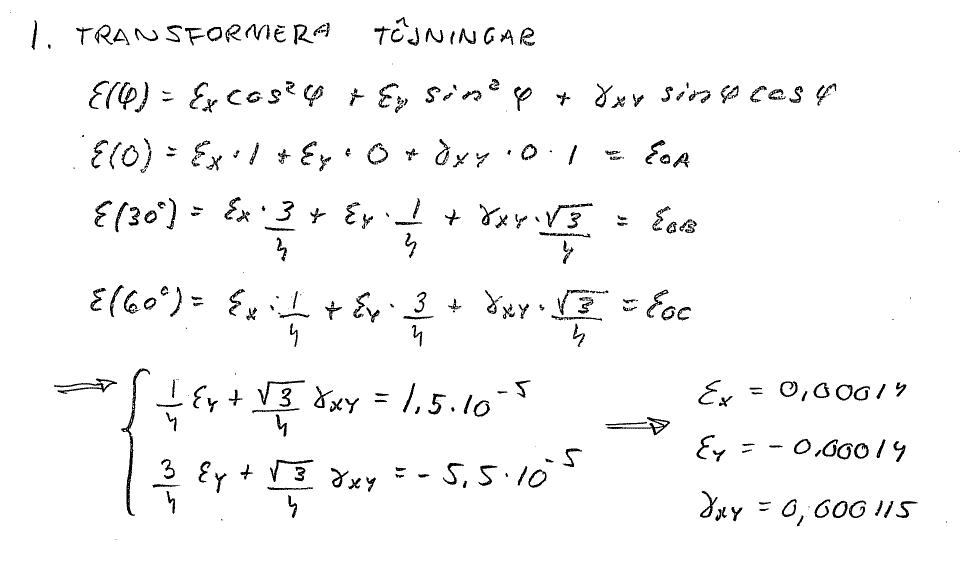 1. TRANSFORMERA TÖJNINGAR
ε(φ) = εx cos²φ + εy sin²φ + γxy sinφ cosφ
ε(0) = εx · 1 + εy · 0 + γxy · 0 · 1 = ε0A
ε(30°) = εx · 3/4 + εy · 1/4 + γxy · √3/4 = ε0B
ε(60°) = εx · 1/4 + εy · 3/4 + γxy · √3/4 = ε0C
⟹ { 1/4 εy + √3/4 γxy = 1,5 · 10⁻⁵
3/4 εy + √3/4 γxy = - 5,5 · 10⁻⁵
⟹ εx = 0,00014
εy = - 0,00014
γxy = 0,000115